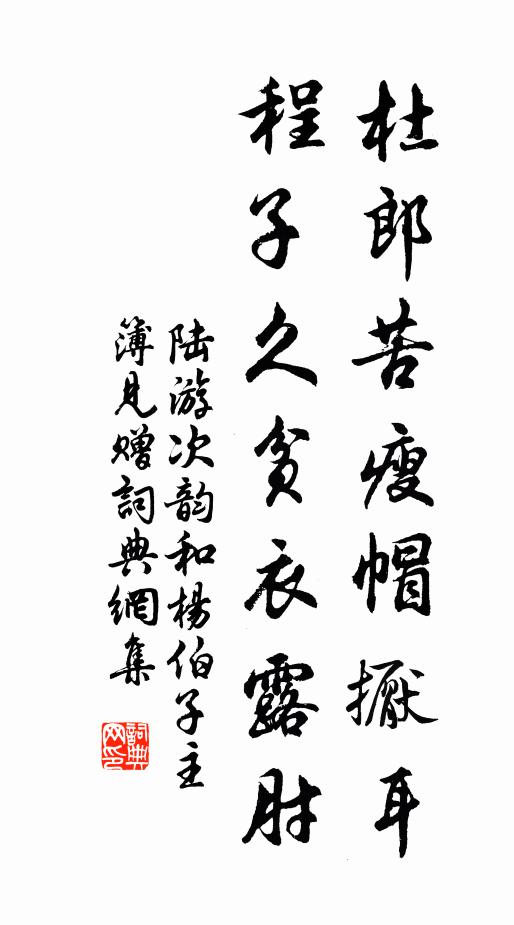 杜郎苦瘦帽擫耳
程子久貧衣露肘
陆游次韵和楊伯子主
簿見贈詞典網集
詞典
网印